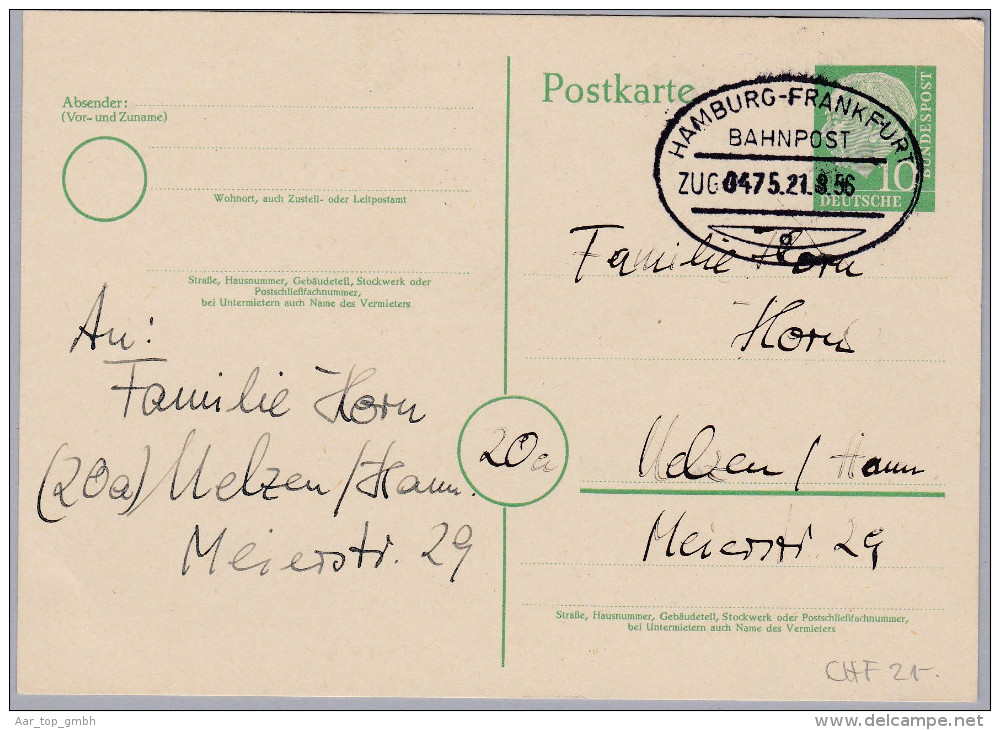 Absender:
(Vor- und Zuname)
Wohnort, auch Zustell- oder Leitpostamt
Straße, Hausnummer, Gebäudeteil, Stockwerk oder
Postschließfachnummer,
bei Untermietern auch Name des Vermieters
An:
Familie Horn
(20a) Uelzen/Hann.
Meierstr. 29
Postkarte
HAMBURG-FRANKFURT
BAHNPOST
ZUG 0475.21.8.56
d
BUNDESPOST
10
DEUTSCHE
Familie Horn
Horn
20a
Uelzen / Hann
Meierstr 29
Straße, Hausnummer, Gebäudeteil, Stockwerk oder Postschließfachnummer,
bei Untermietern auch Name des Vermieters
CHF 21-
Aar_top_gmbh
delcampe.net